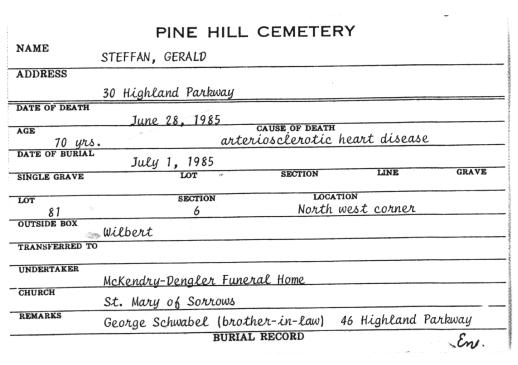 PINE HILL CEMETERY
NAME
STEFFAN, GERALD
ADDRESS
30 Highland Parkway
DATE OF DEATH
June 28, 1985
AGE CAUSE OF DEATH
70 yrs. arteriosclerotic heart disease
DATE OF BURIAL
July 1, 1985
SINGLE GRAVE LOT SECTION LINE GRAVE
LOT SECTION LOCATION
81 6 North west corner
OUTSIDE BOX
Wilbert
TRANSFERRED TO
UNDERTAKER
McKendry-Dengler Funeral Home
CHURCH
St. Mary of Sorrows
REMARKS
George Schwabel (brother-in-law) 46 Highland Parkway
BURIAL RECORD
En.